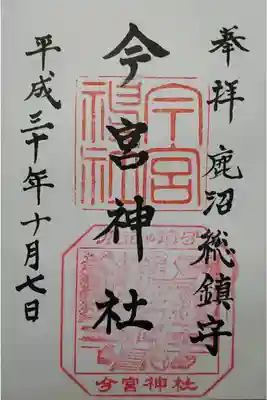 奉拝 鹿沼総鎮守
今宮神社
平成三十年十月七日
今宮神社
今宮神社